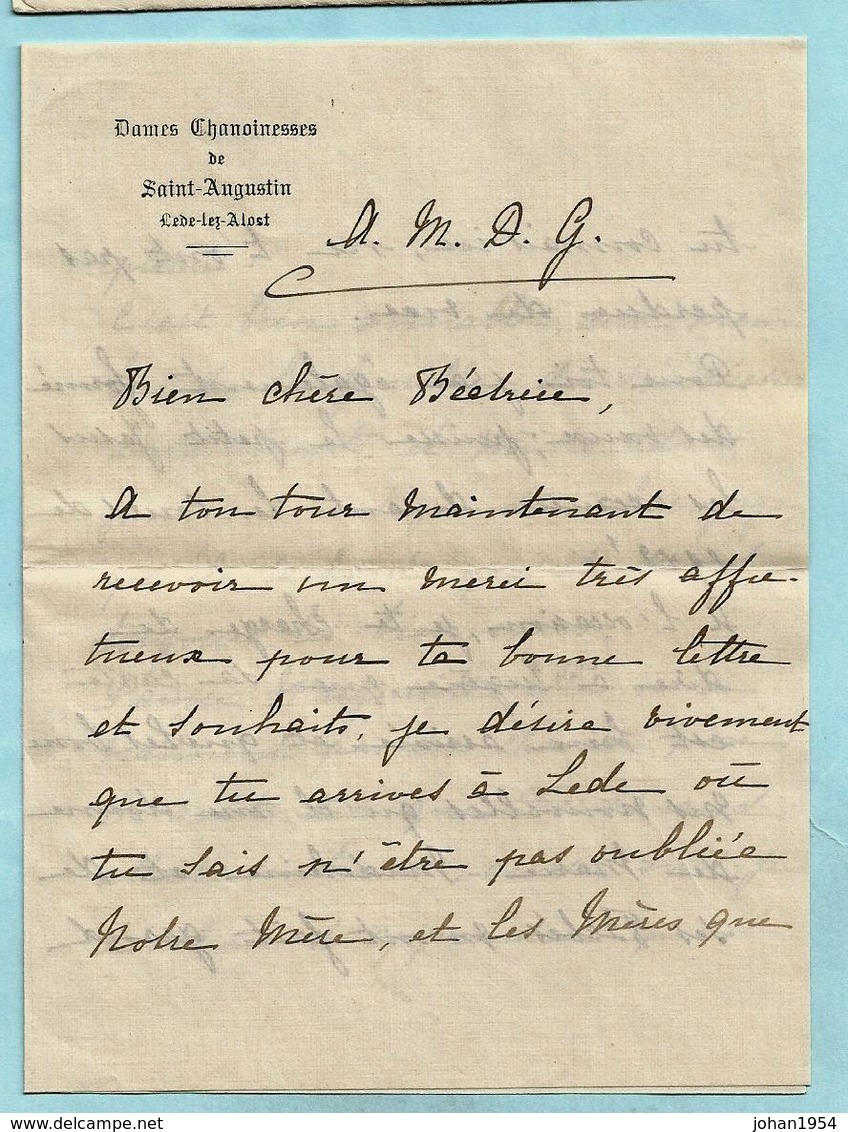 Dames Chanoinesses
de
Saint-Augustin
Lede-lez-Alost
A. M. D. G.
Bien chère Béatrice,
A ton tour maintenant de
recevoir un merci très affec-
tueux pour ta bonne lettre
et souhaits, je désire vivement
que tu arrives à Lede où
tu sais n'être pas oubliée
Notre Mère, et les Mères que
johan1954